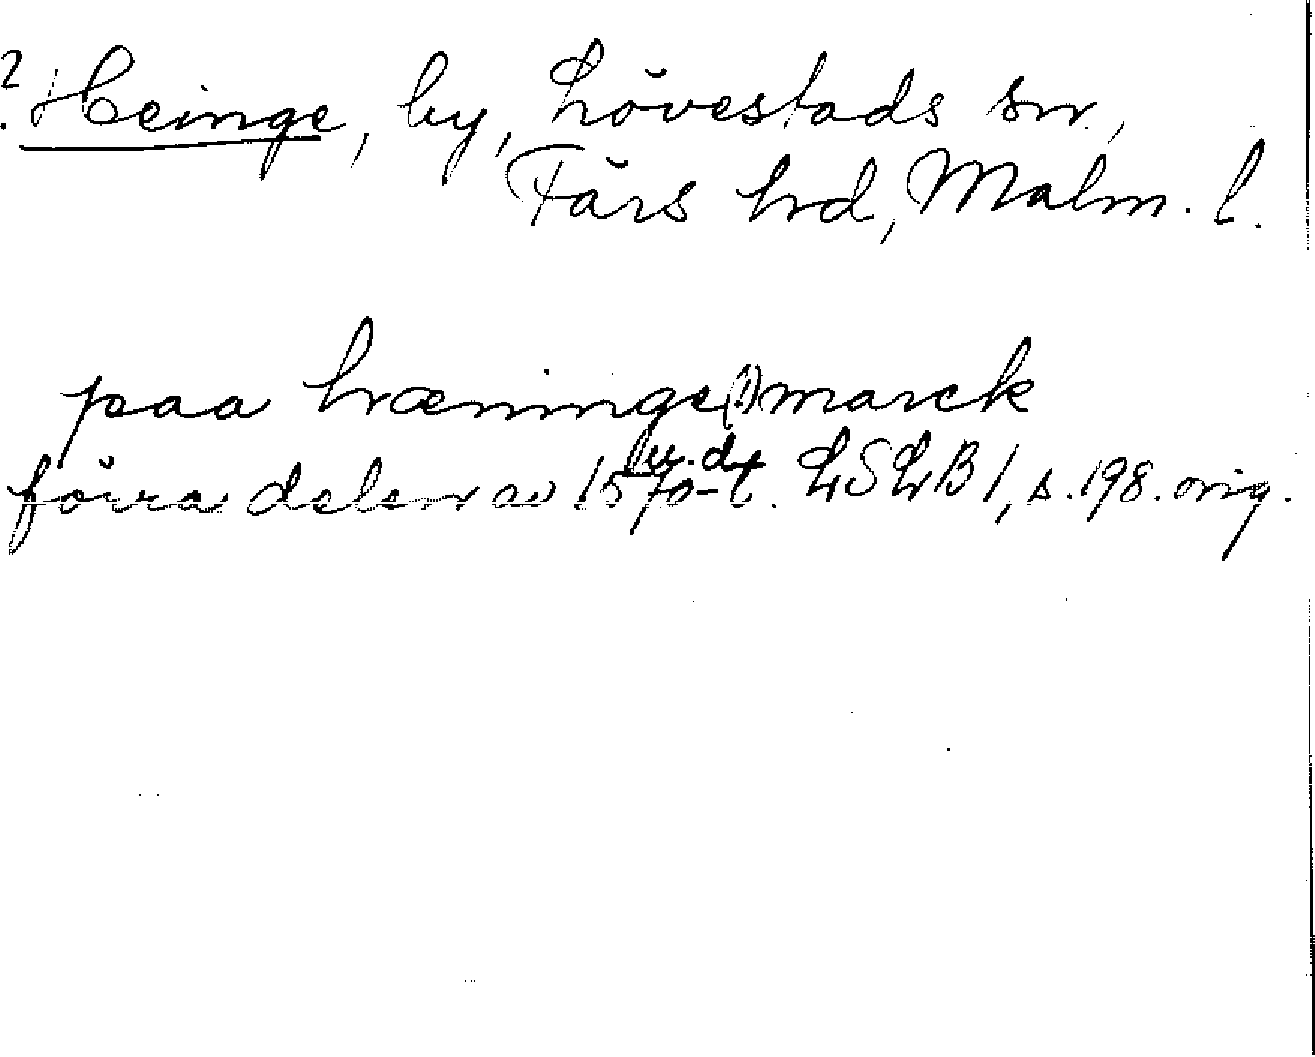 ? Heinge, by, Lövestads sn,
Färs hd, Malm. l.
paa hæninge(!)marck
u.d.
förra delen av 1570-t. LSLB 1, s. 198. orig.